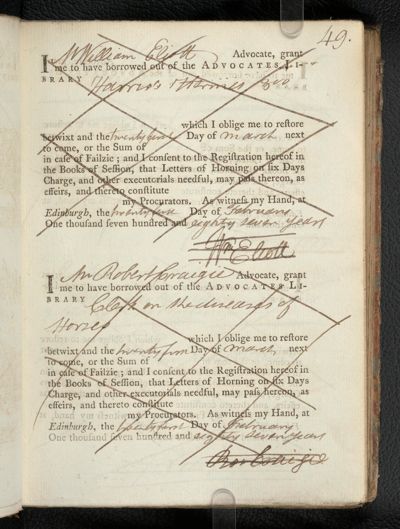 49.
I Mr William Eliott Advocate, grant
me to have borrowed out of the ADVOCATES LI-
BRARY Harris's Hermes 8vo
which I oblige me to restore
betwixt and the twenty first Day of March next
to come, or the Sum of
in case of Failzie; and I consent to the Registration hereof in
the Books of Session, that Letters of Horning on six Days
Charge, and other executorials needful, may pass thereon, as
effeirs, and thereto constitute
my Procurators. As witness my Hand, at
Edinburgh, the twenty first Day of February
One thousand seven hundred and eighty seven years
Wm Eliott
I Mr Robert Craigie Advocate, grant
me to have borrowed out of the ADVOCATES LI-
BRARY Clark on the diseases of
Horses
which I oblige me to restore
betwixt and the twenty first Day of March next
to come, or the Sum of
in case of Failzie; and I consent to the Registration hereof in
the Books of Session, that Letters of Horning on six Days
Charge, and other executorials needful, may pass hereon, as
effeirs, and thereto constitute
my Procurators. As witness my Hand, at
Edinburgh, the twenty first Day of February
One thousand seven hundred and eighty seven years
Ro: Craigie